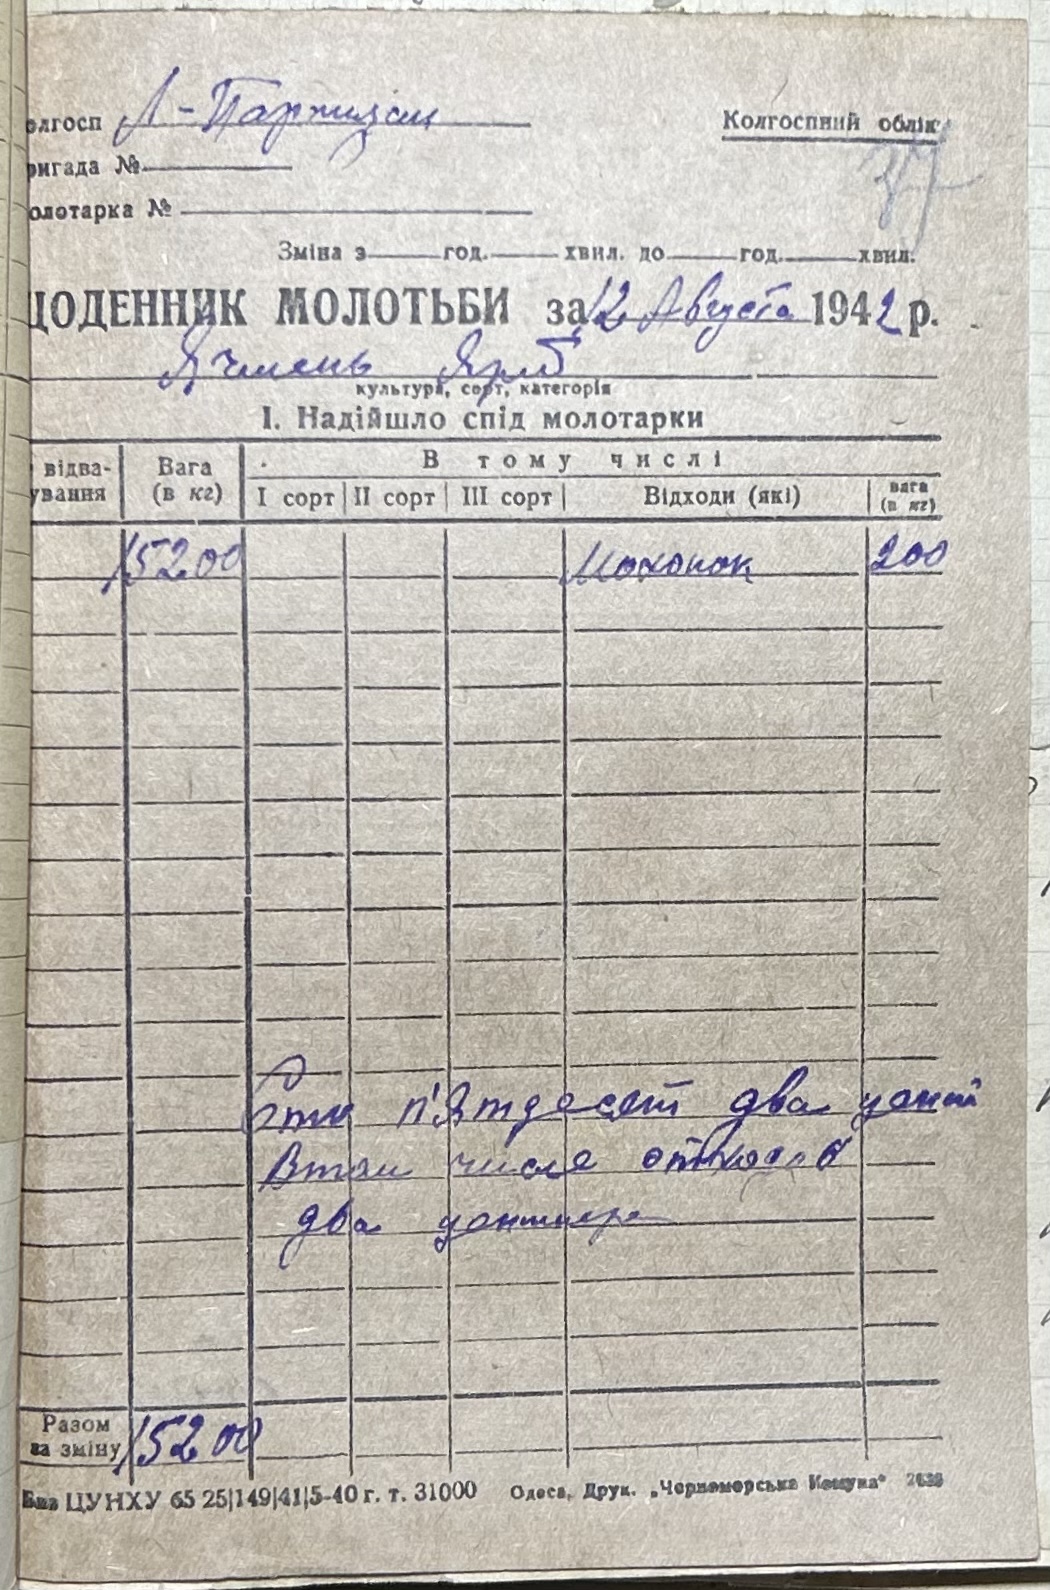 олгосп Л-Партизан
Колгоспний облік
ригада №
олотарка №
Зміна з год. хвил. до год. хвил.
ЩОДЕННИК МОЛОТЬБИ за 12 Августа 1942 р.
Ячмень
культура, сорт, категорія
І. Надійшло спід молотарки
відва-
ування
Вага
(в кг)
В тому числі
І сорт ІІ сорт ІІІ сорт Відходи (які) вага
(в кг)
15200 200
Сто п'ятдесят два
Втом числе отходов
два центнера
Разом
за зміну 15200
ЦУНХУ 65 25|149|41|5-40 г. т. 31000 Одеса, Друк. „Чорноморська Комуна"